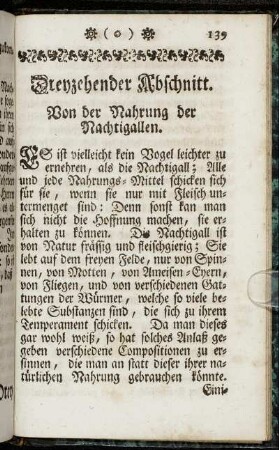 ( o ) 139
Dreyzehender Abschnitt.
Von der Nahrung der
Nachtigallen.
ES ist vielleicht kein Vogel leichter zu
ernehren, als die Nachtigall; Alle
und jede Nahrungs-Mittel schicken sich
für sie, wenn sie nur mit Fleisch un-
termenget sind: Denn sonst kan man
sich nicht die Hoffnung machen, sie er-
halten zu können. Die Nachtigall ist
von Natur fräßig und fleischgierig; Sie
lebt auf dem freyen Felde, nur von Spin-
nen, von Motten, von Ameisen-Eyern,
von Fliegen, und von verschiedenen Gat-
tungen der Würmer, welche so viele be-
lebte Substanzen sind, die sich zu ihrem
Temperament schicken. Da man dieses
gar wohl weiß, so hat solches Anlaß ge-
geben verschiedene Compositionen zu er-
sinnen, die man an statt dieser ihrer na-
türlichen Nahrung gebrauchen könnte.
Eini-